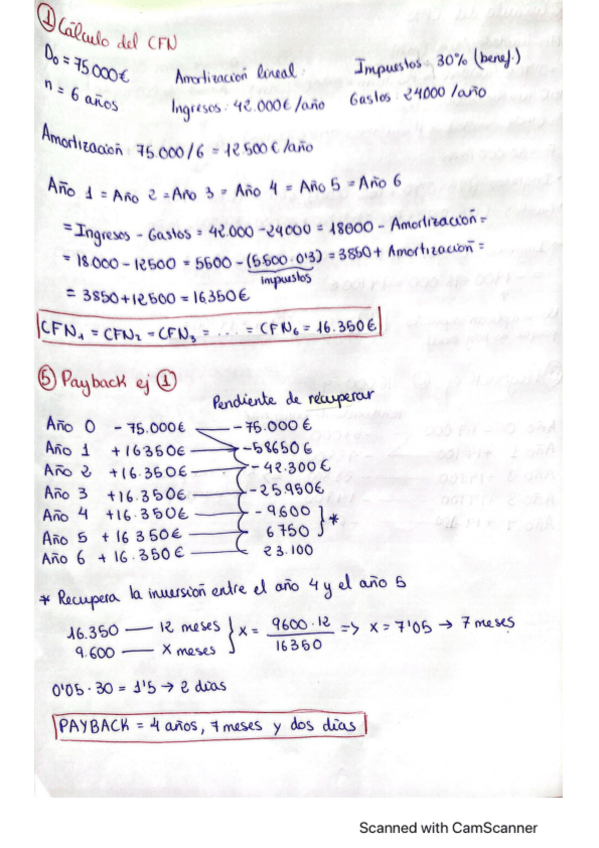 ① Cálculo del CFN
D₀ = 75000€ Amortización lineal: Impuestos: 30% (benef.)
n = 6 años Ingresos: 42.000€/año Gastos: 24000/año
Amortización: 75.000/6 = 12500€/año
Año 1 = Año 2 = Año 3 = Año 4 = Año 5 = Año 6
= Ingresos - Gastos = 42.000 - 24000 = 18000 - Amortización =
= 18000 - 12500 = 5500 - (5500·0'3) = 3850 + Amortización =
impuestos
= 3850 + 12500 = 16.350€
CFN₁ = CFN₂ = CFN₃ = ... = CFN₆ = 16.350€
⑤ Payback ej ①
Pendiente de recuperar
Año 0 - 75.000€ - 75.000€
Año 1 + 16350€ - 58650€
Año 2 + 16.350€ - 42.300€
Año 3 + 16.350€ - 25.950€
Año 4 + 16.350€ - 9.600 } *
Año 5 + 16350€ 6750
Año 6 + 16.350€ 23.100
* Recupera la inversión entre el año 4 y el año 5
16.350 — 12 meses } x = 9600·12 / 16350 => x = 7'05 → 7 meses
9.600 — x meses
0'05·30 = 1'5 → 2 días
PAYBACK = 4 años, 7 meses y dos días
Scanned with CamScanner